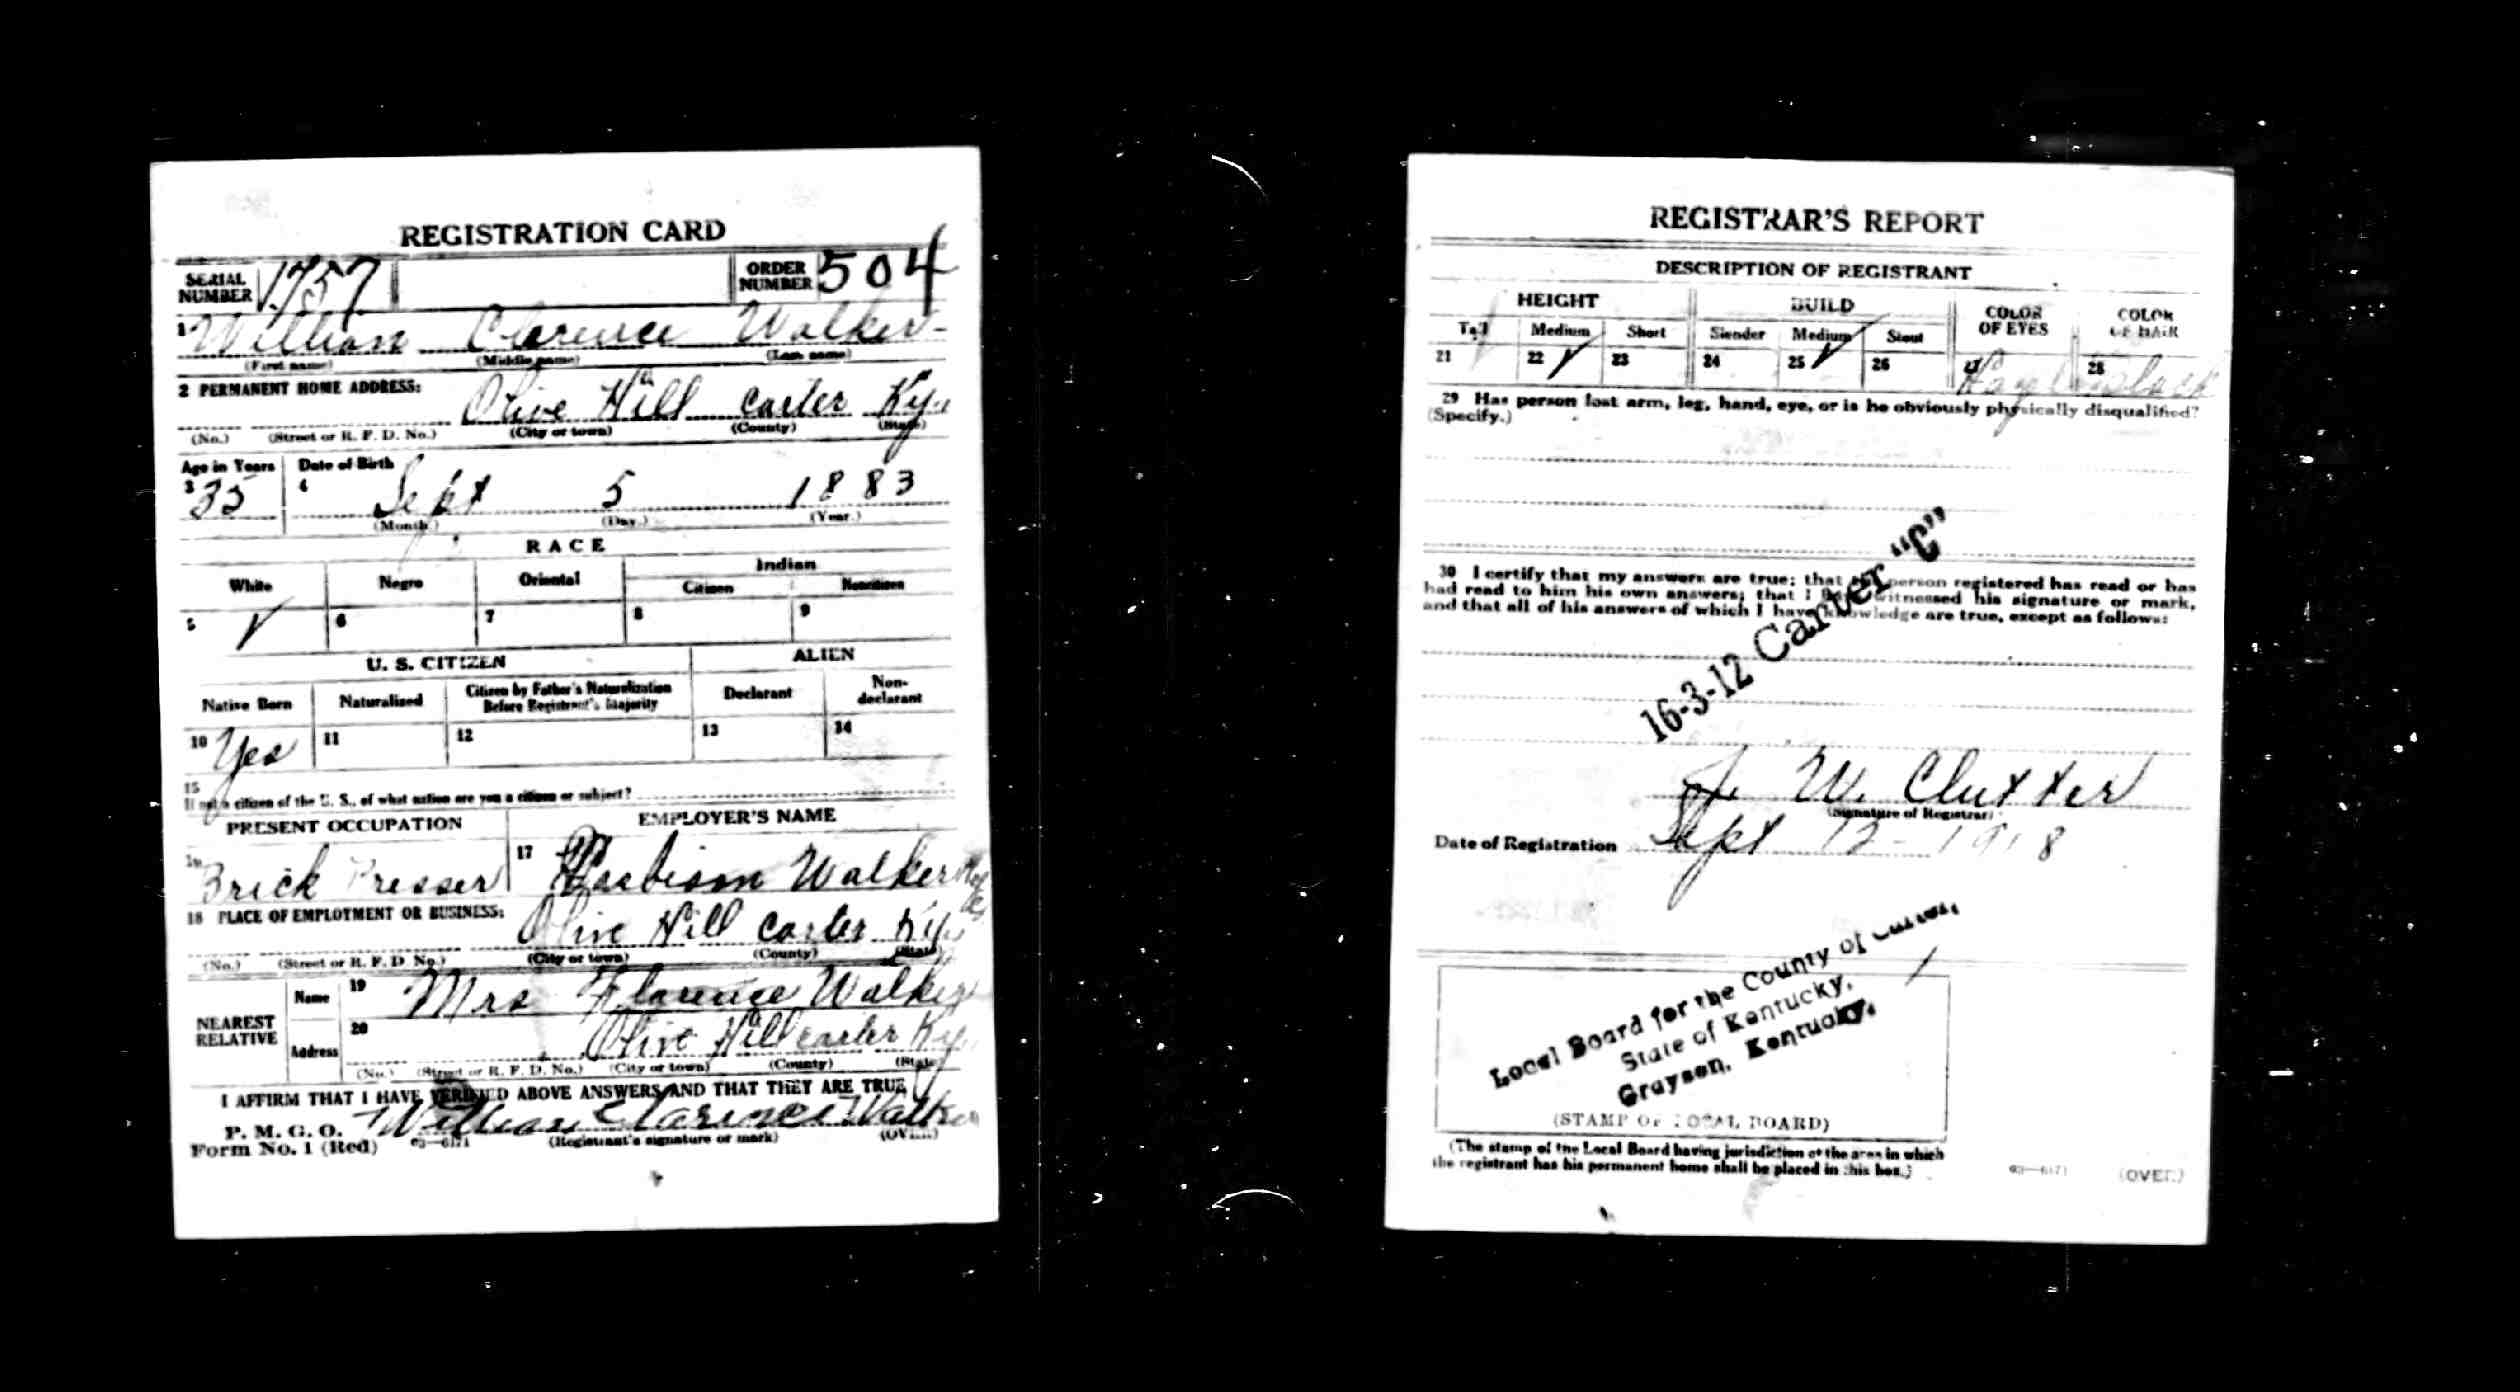 REGISTRATION CARD
SERIAL NUMBER 1757 ORDER NUMBER 504
1 William Clarence Walker
(First name) (Middle name) (Last name)
2 PERMANENT HOME ADDRESS:
Olive Hill Carter Ky.
(No.) (Street or R. F. D. No.) (City or town) (County) (State)
Age in Years Date of Birth
3 35 4 Sept 5 1883
(Month.) (Day.) (Year.)
RACE
White Negro Oriental Indian
Citizen Noncitizen
5 ✓ 6 7 8 9
U. S. CITIZEN ALIEN
Native Born Naturalized Citizen by Father's Naturalization Before Registrant's Majority Declarant Non-declarant
10 Yes 11 12 13 14
15
If not a citizen of the U. S., of what nation are you a citizen or subject?
PRESENT OCCUPATION EMPLOYER'S NAME
16 Brick Presser 17 Harbison Walker
18 PLACE OF EMPLOYMENT OR BUSINESS:
Olive Hill Carter Ky.
(No.) (Street or R. F. D. No.) (City or town) (County) (State)
NEAREST RELATIVE
Name 19 Mrs Florence Walker
Address 20 Olive Hill Carter Ky.
(No.) (Street or R. F. D. No.) (City or town) (County) (State)
I AFFIRM THAT I HAVE VERIFIED ABOVE ANSWERS AND THAT THEY ARE TRUE
P. M. G. O. William Clarence Walker
Form No. 1 (Red) 03—6171 (Registrant's signature or mark) (OVER)
REGISTRAR'S REPORT
DESCRIPTION OF REGISTRANT
HEIGHT BUILD COLOR OF EYES COLOR OF HAIR
Tall Medium Short Slender Medium Stout
21 22 ✓ 23 24 25 ✓ 26 27 28 Black
29 Has person lost arm, leg, hand, eye, or is he obviously physically disqualified?
(Specify.)
30 I certify that my answers are true; that the person registered has read or has
had read to him his own answers; that I have witnessed his signature or mark,
and that all of his answers of which I have knowledge are true, except as follows:
16-3-12 Carter "C"
J. W. Clutter
(Signature of Registrar)
Date of Registration Sept 12 - 1918
Local Board for the County of Carter,
State of Kentucky,
Grayson, Kentucky.
(STAMP OF LOCAL BOARD)
(The stamp of the Local Board having jurisdiction of the area in which
the registrant has his permanent home shall be placed in this box.)
03—6171 (OVER)